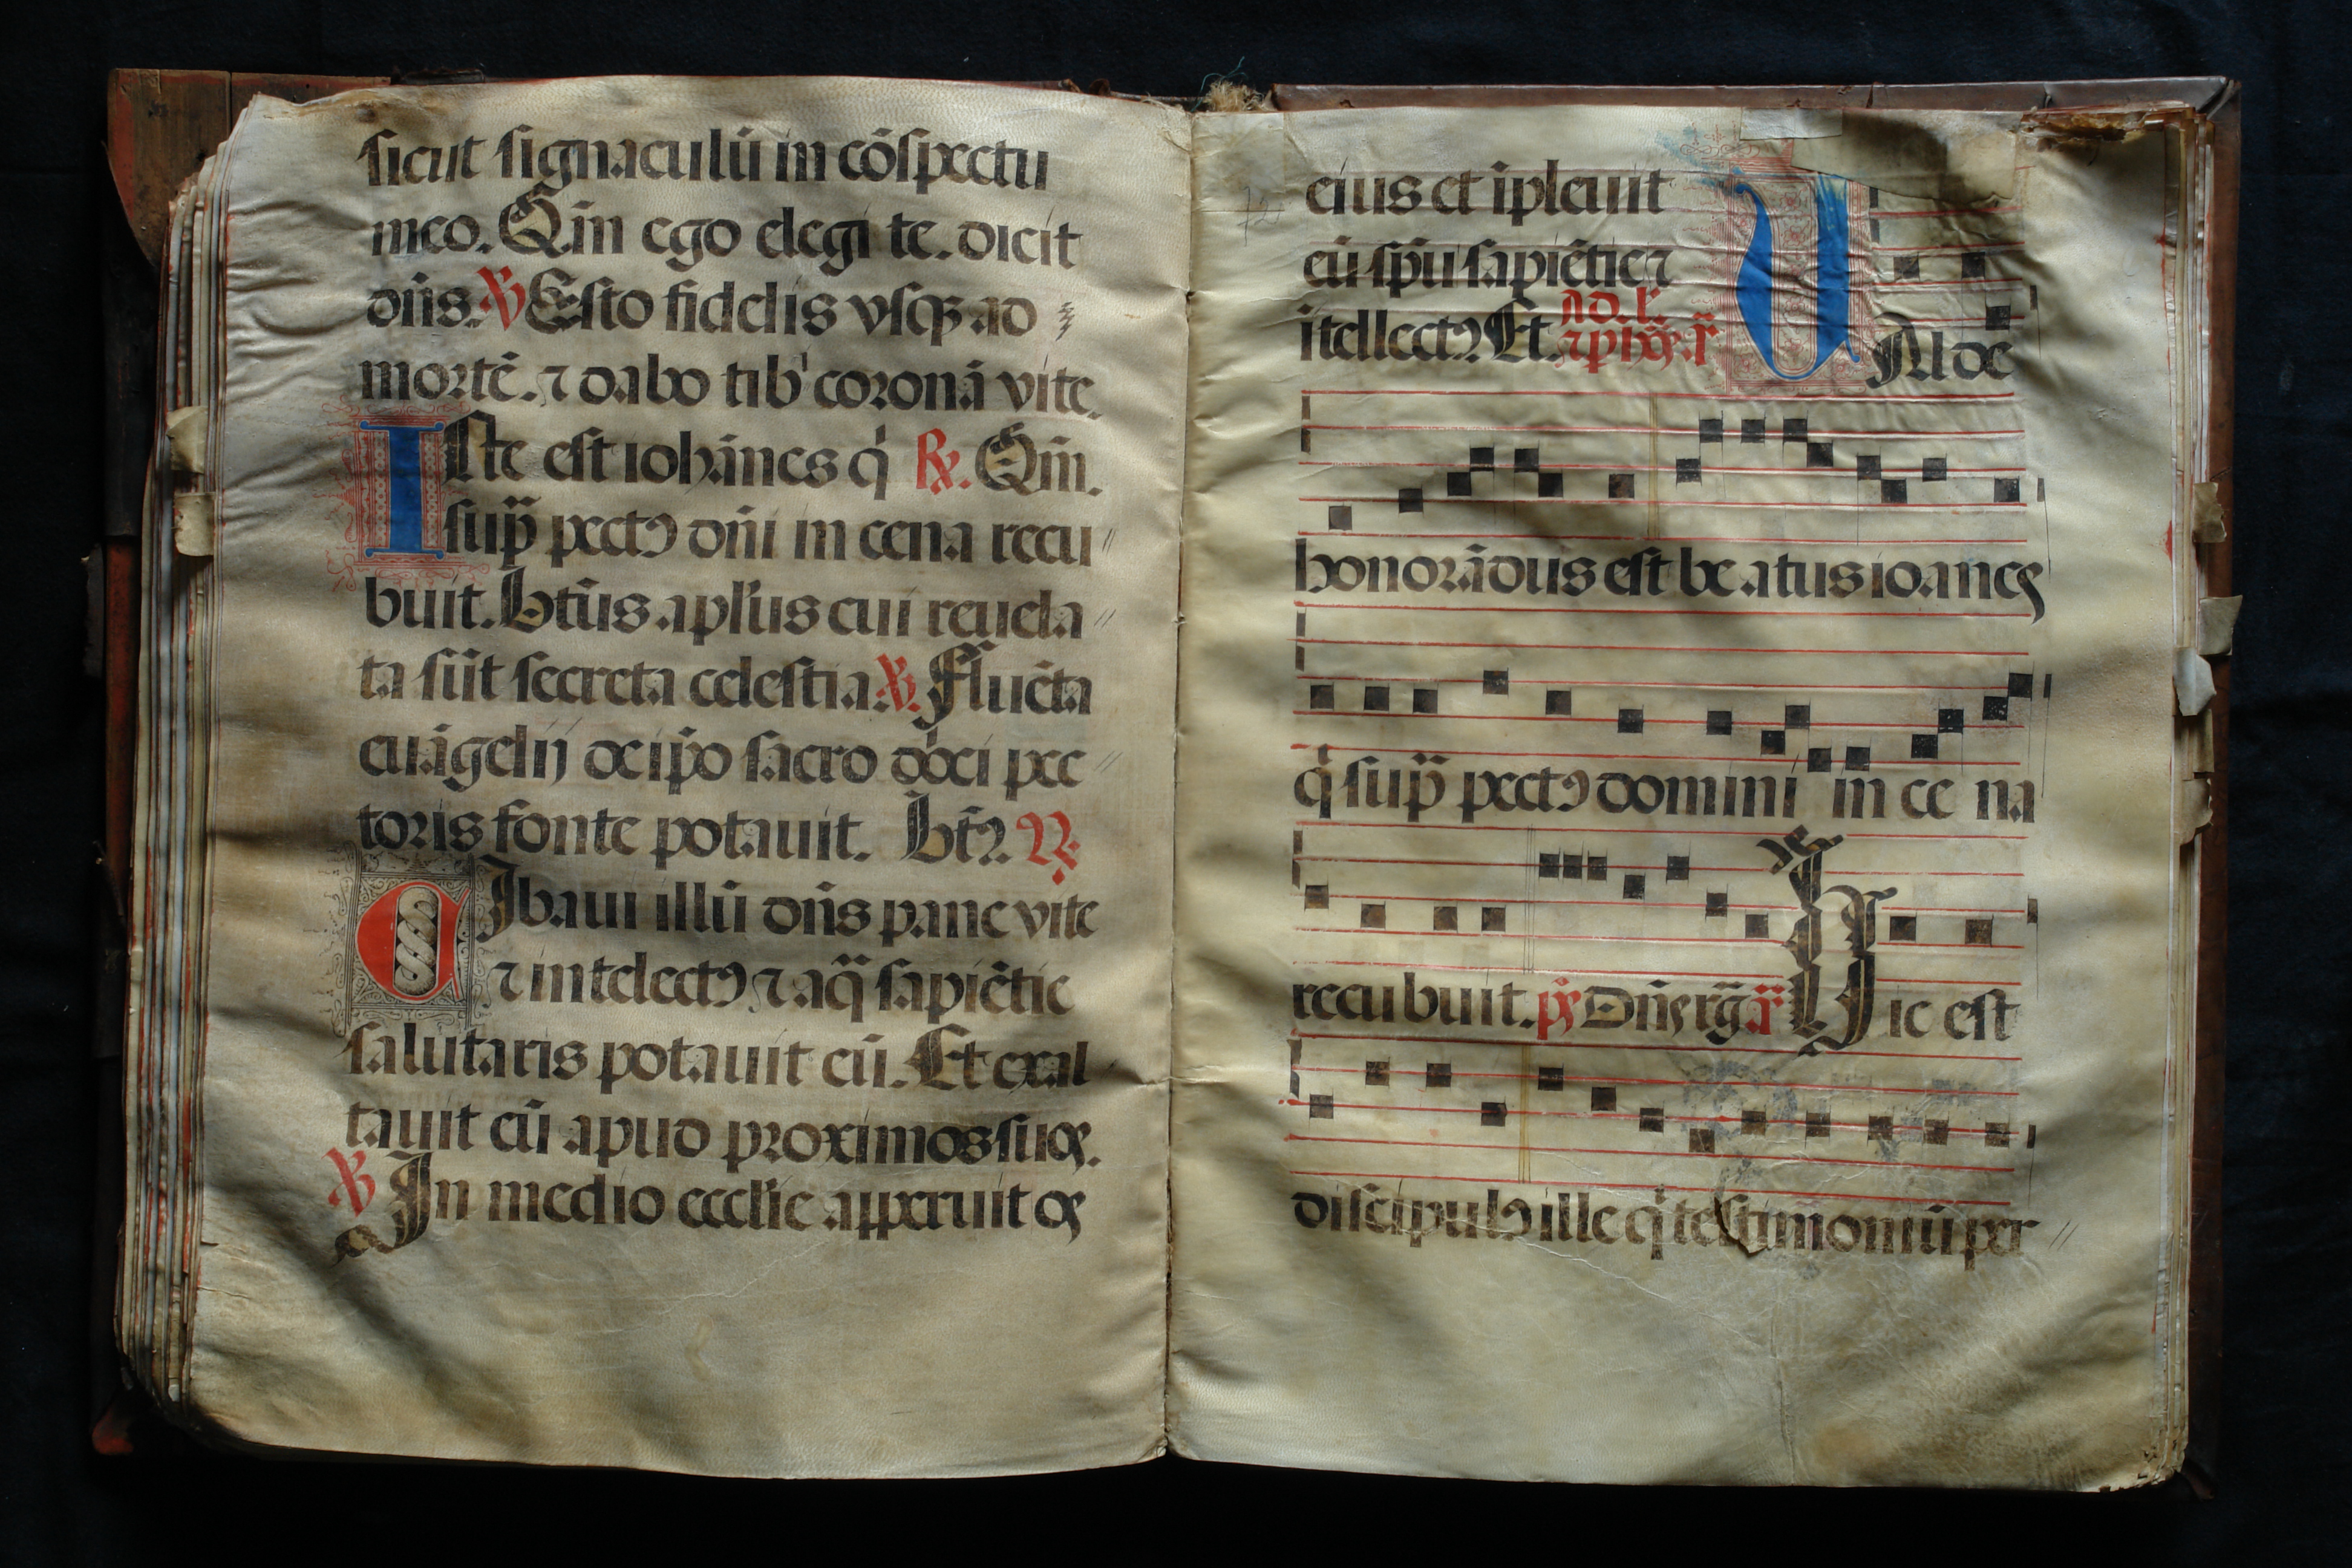 sicut signaculū in cōspectu
meo. Qm̄ ego elegi te. dicit
dn̄s. ℣ Esto fidelis vsq̄ ad
mortē. ⁊ dabo tibˀ coronā vite.
Iste est iohānes q̇ ℟. Qm̄.
sup̄ pectꝰ dn̄i in cena recu
buit. btūs apl̄us cui reuela
ta sūt secreta celestia. ℣. Fluēta
euāgelij de ip̄o sacro dn̄ici pec
toris fonte potauit. bt̄ꝰ. ℟.
Cibaui illū dn̄s pane vite
⁊ intelectꝰ ⁊ aq̄ sapiētie
salutaris potauit eū. Et exal
tauit eū apud proximos suos.
℣ In medio eccl̄ie apperuit os
eius et īpleuit
eū sp̄u sapiētie ⁊
ītellectꝰ. Et. Ad. l.
Ualde
honorādus est beatus ioanes
q̇ sup̄ pectꝰ domini in cena
recubuit. ps̄ Dn̄s rḡ. ā. Hic est
discipulꝰ ille q̇ testimoniū per